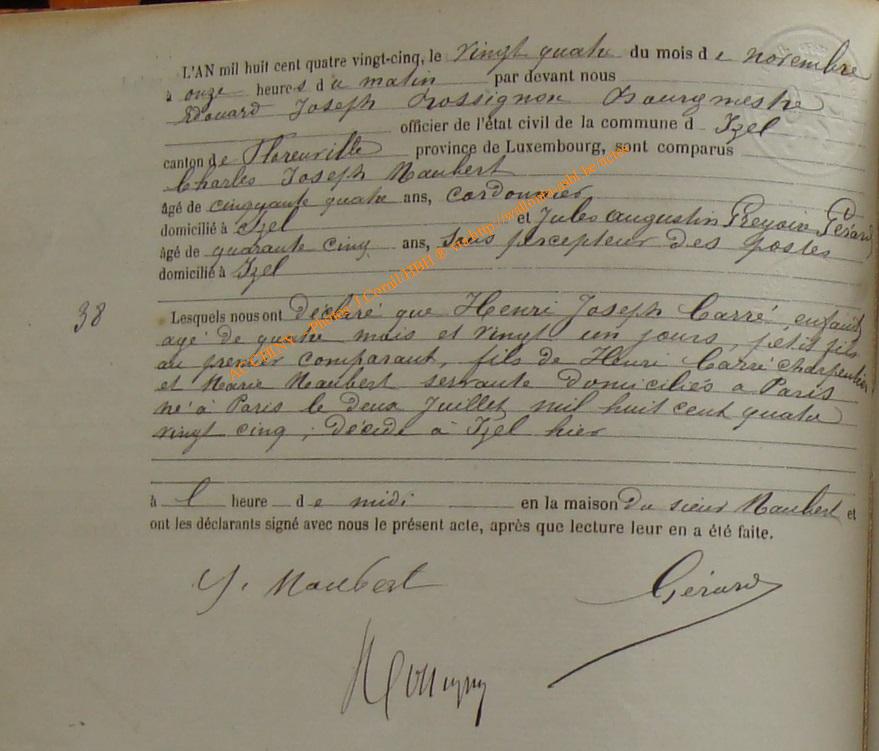 L'AN mil huit cent quatre vingt-cinq, le vingt quatre du mois de novembre
à onze heures du matin par devant nous
Edouard Joseph Rossignon Bourgmestre
officier de l'état civil de la commune d Izel
canton de Florenville province de Luxembourg, sont comparus
Charles Joseph Naubert
âgé de cinquante quatre ans, cordonnier
domicilié à Izel et Jules augustin Gérard
âgé de quarante cinq ans, sous percepteur des postes
domicilié à Izel
38
Lesquels nous ont déclaré que Henri Joseph Carré, enfant
agé de quatre mois et vingt un jours, petit fils
au premier comparant, fils de Henri Carré charpentier
et Marie Naubert servante domiciliés a Paris
né à Paris le deux Juillet mil huit cent quatre
vingt cinq ; décédé à Izel hier
à l heure de midi en la maison du sieur Naubert et
ont les déclarants signé avec nous le présent acte, après que lecture leur en a été faite.
J. Naubert
Gérard